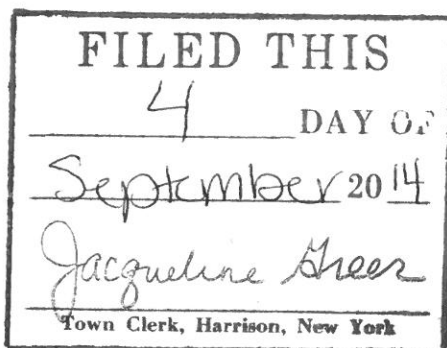 FILED THIS
4 DAY OF
September 20 14
Jacqueline Greer
Town Clerk, Harrison, New York